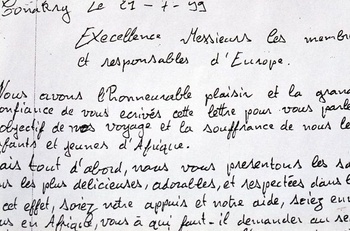 Conakry, Le 29 - 7 - 99
Execellence Messieurs les membr
et responsables d'Europe.
Nous avons l'honneurable plaisir et la gran
onfiance de vous ecrives cette lettre pour vous parle
objectif de nos voyage et la souffrance de nous le
fants et jeunes d'Afrique.
ais tout d'abord, nous vous presentons les sa
us les plus delicieuses, adorables, et respectées dans t
cet effet, soiez notre appuis et notre aide, soiez en
us en Afrique, vous à qui faut-il demander au se